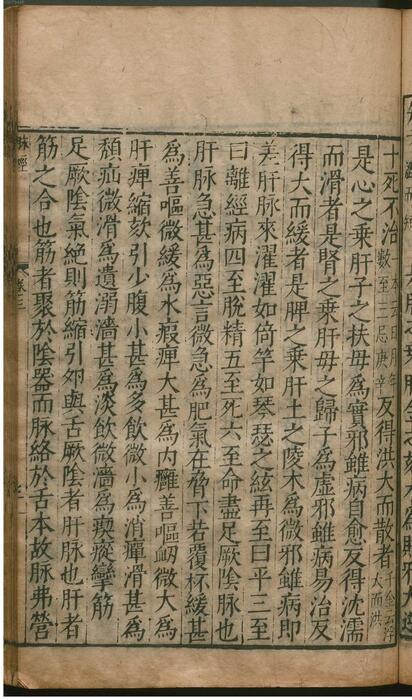 十死不治本云日月年數至二忌庚辛反得洪大而散者千金云浮大而洪
是心之乘肝子之扶母爲實邪雖病自愈反得沈濡
而滑者是腎之乘肝母之歸子爲虛邪雖病易治反
得大而緩者是脾之乘肝土之陵木爲微邪雖病即
差肝脉來濯濯如倚竿如琴瑟之絃再至曰平三至
曰離經病四至脫精五至死六至命盡足厥陰脉也
肝脉急甚爲惡言微急爲肥氣在脅下若覆杯緩甚
爲善嘔微緩爲水瘕痺大甚爲內癰善嘔衂微大爲
肝痺縮欬引少腹小甚爲多飲微小爲消癉滑甚爲
㿗疝微滑爲遺溺濇甚爲淡飲微濇爲瘈瘲攣筋
足厥陰氣絕則筋縮引卵與舌厥陰者肝脉也肝者
筋之合也筋者聚於陰器而脉絡於舌本故脉弗營
脉經 卷三